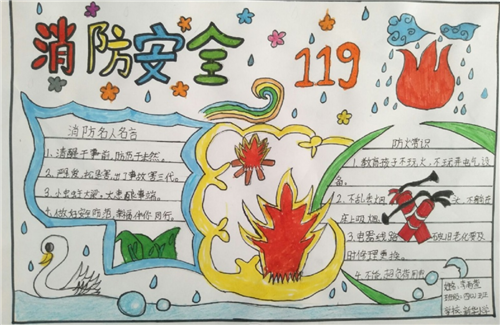 消防安全
119
消防名人名言
1、清醒于事前,防范于未然。
2、严是爱,松是害,出了事故害三代。
3、小虫蛀大梁,火患酿事端。
4、做好安全防范,幸福伴你同行。
防火常识
1、教育孩子不玩火,不玩弄电气设
备。
2、不乱丢烟
在床上吸烟。
3、电器线路
时修理更换。
姓名:
班级:
学校: